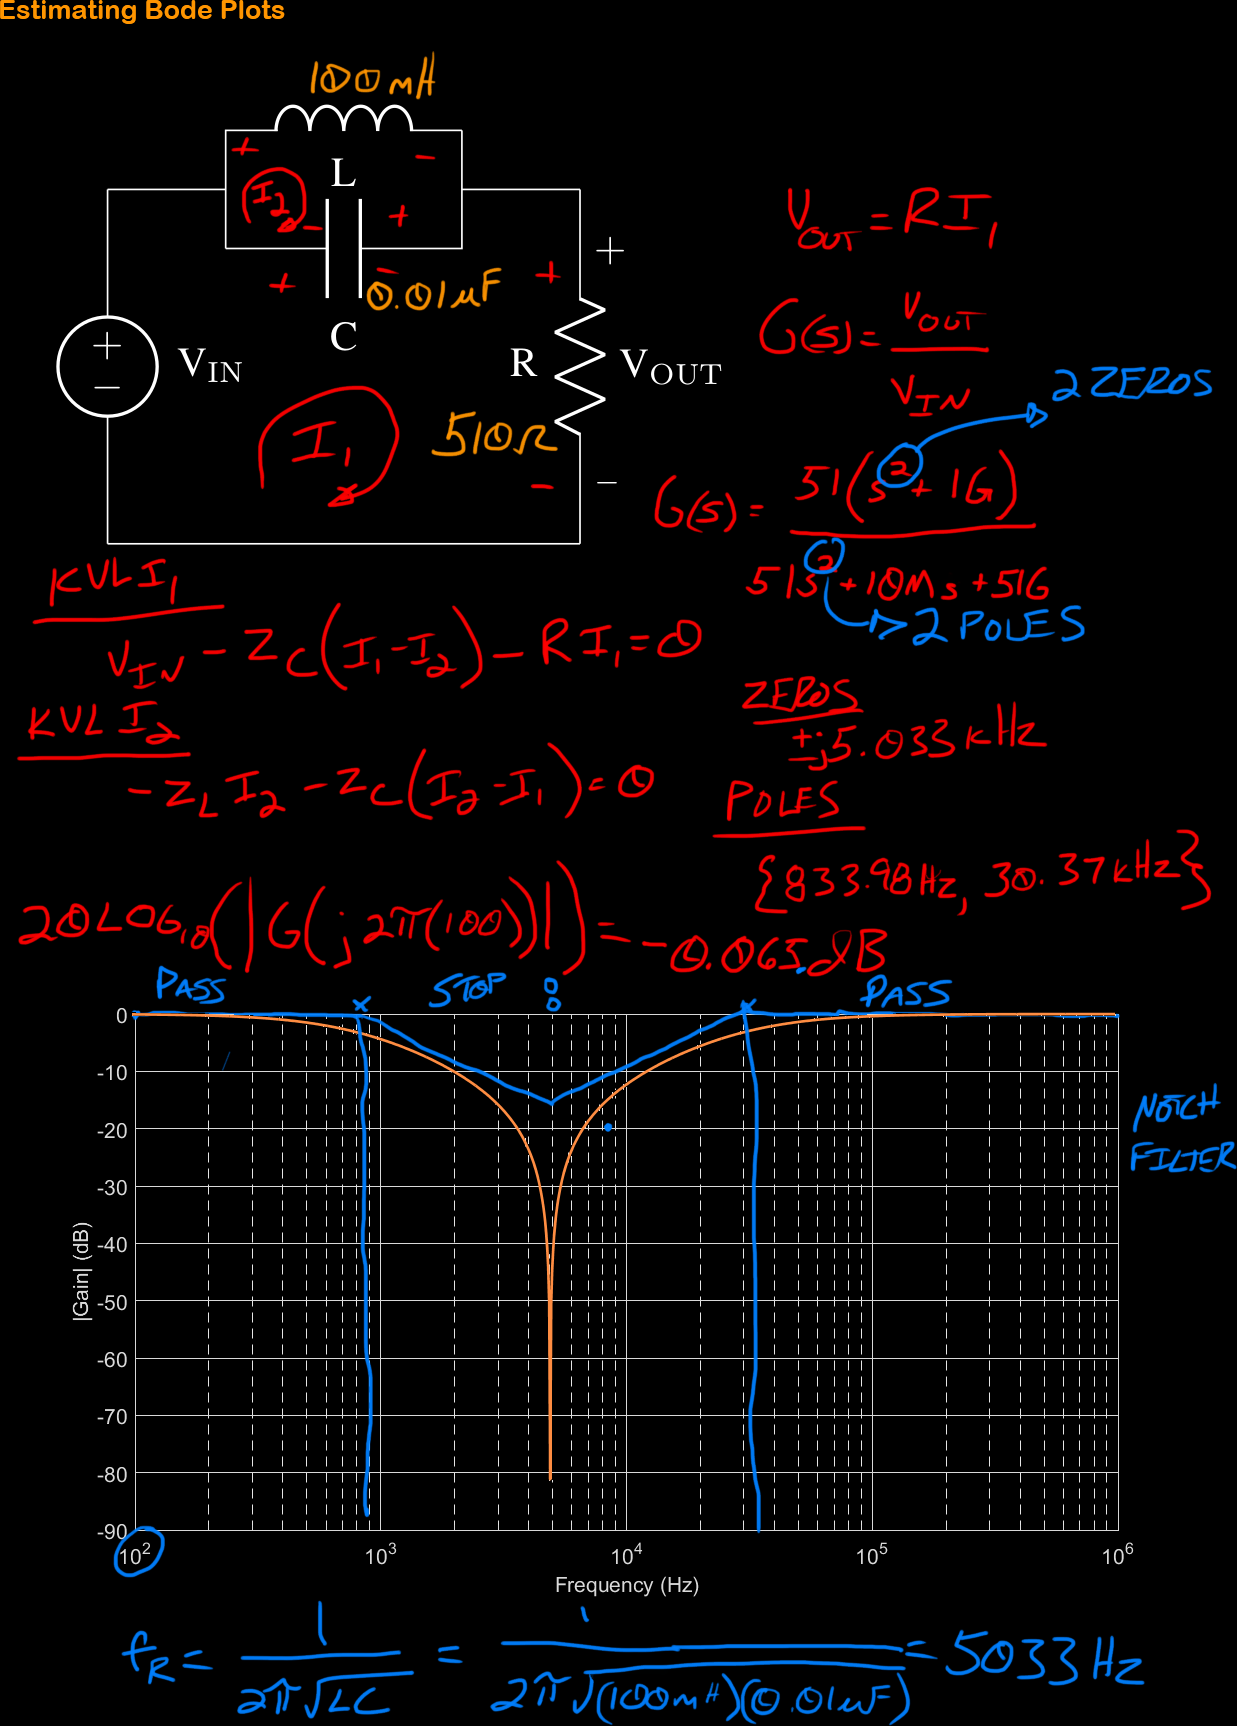 Estimating Bode Plots
100mH
+ -
L
I2
- +
+ -
0.01μF
C
+
-
VIN
I1
R
510Ω
+
-
+
VOUT
-
VOUT = RI1
G(s) = VOUT / VIN
2 ZEROS
G(s) = 51(s² + 1G) / 51s² + 10Ms + 51G
2 POLES
KVL I1
VIN - ZC(I1 - I2) - RI1 = 0
KVL I2
-ZL I2 - ZC(I2 - I1) = 0
ZEROS
±j5.033kHz
POLES
{833.98Hz, 30.37kHz}
20LOG10(|G(j2π(100))|) = -0.063dB
PASS STOP PASS
NOTCH
FILTER
|Gain| (dB)
0
-10
-20
-30
-40
-50
-60
-70
-80
-90
10² 10³ 10⁴ 10⁵ 10⁶
Frequency (Hz)
fR = 1 / 2π√LC = 1 / 2π√(100mH)(0.01uF) = 5033Hz